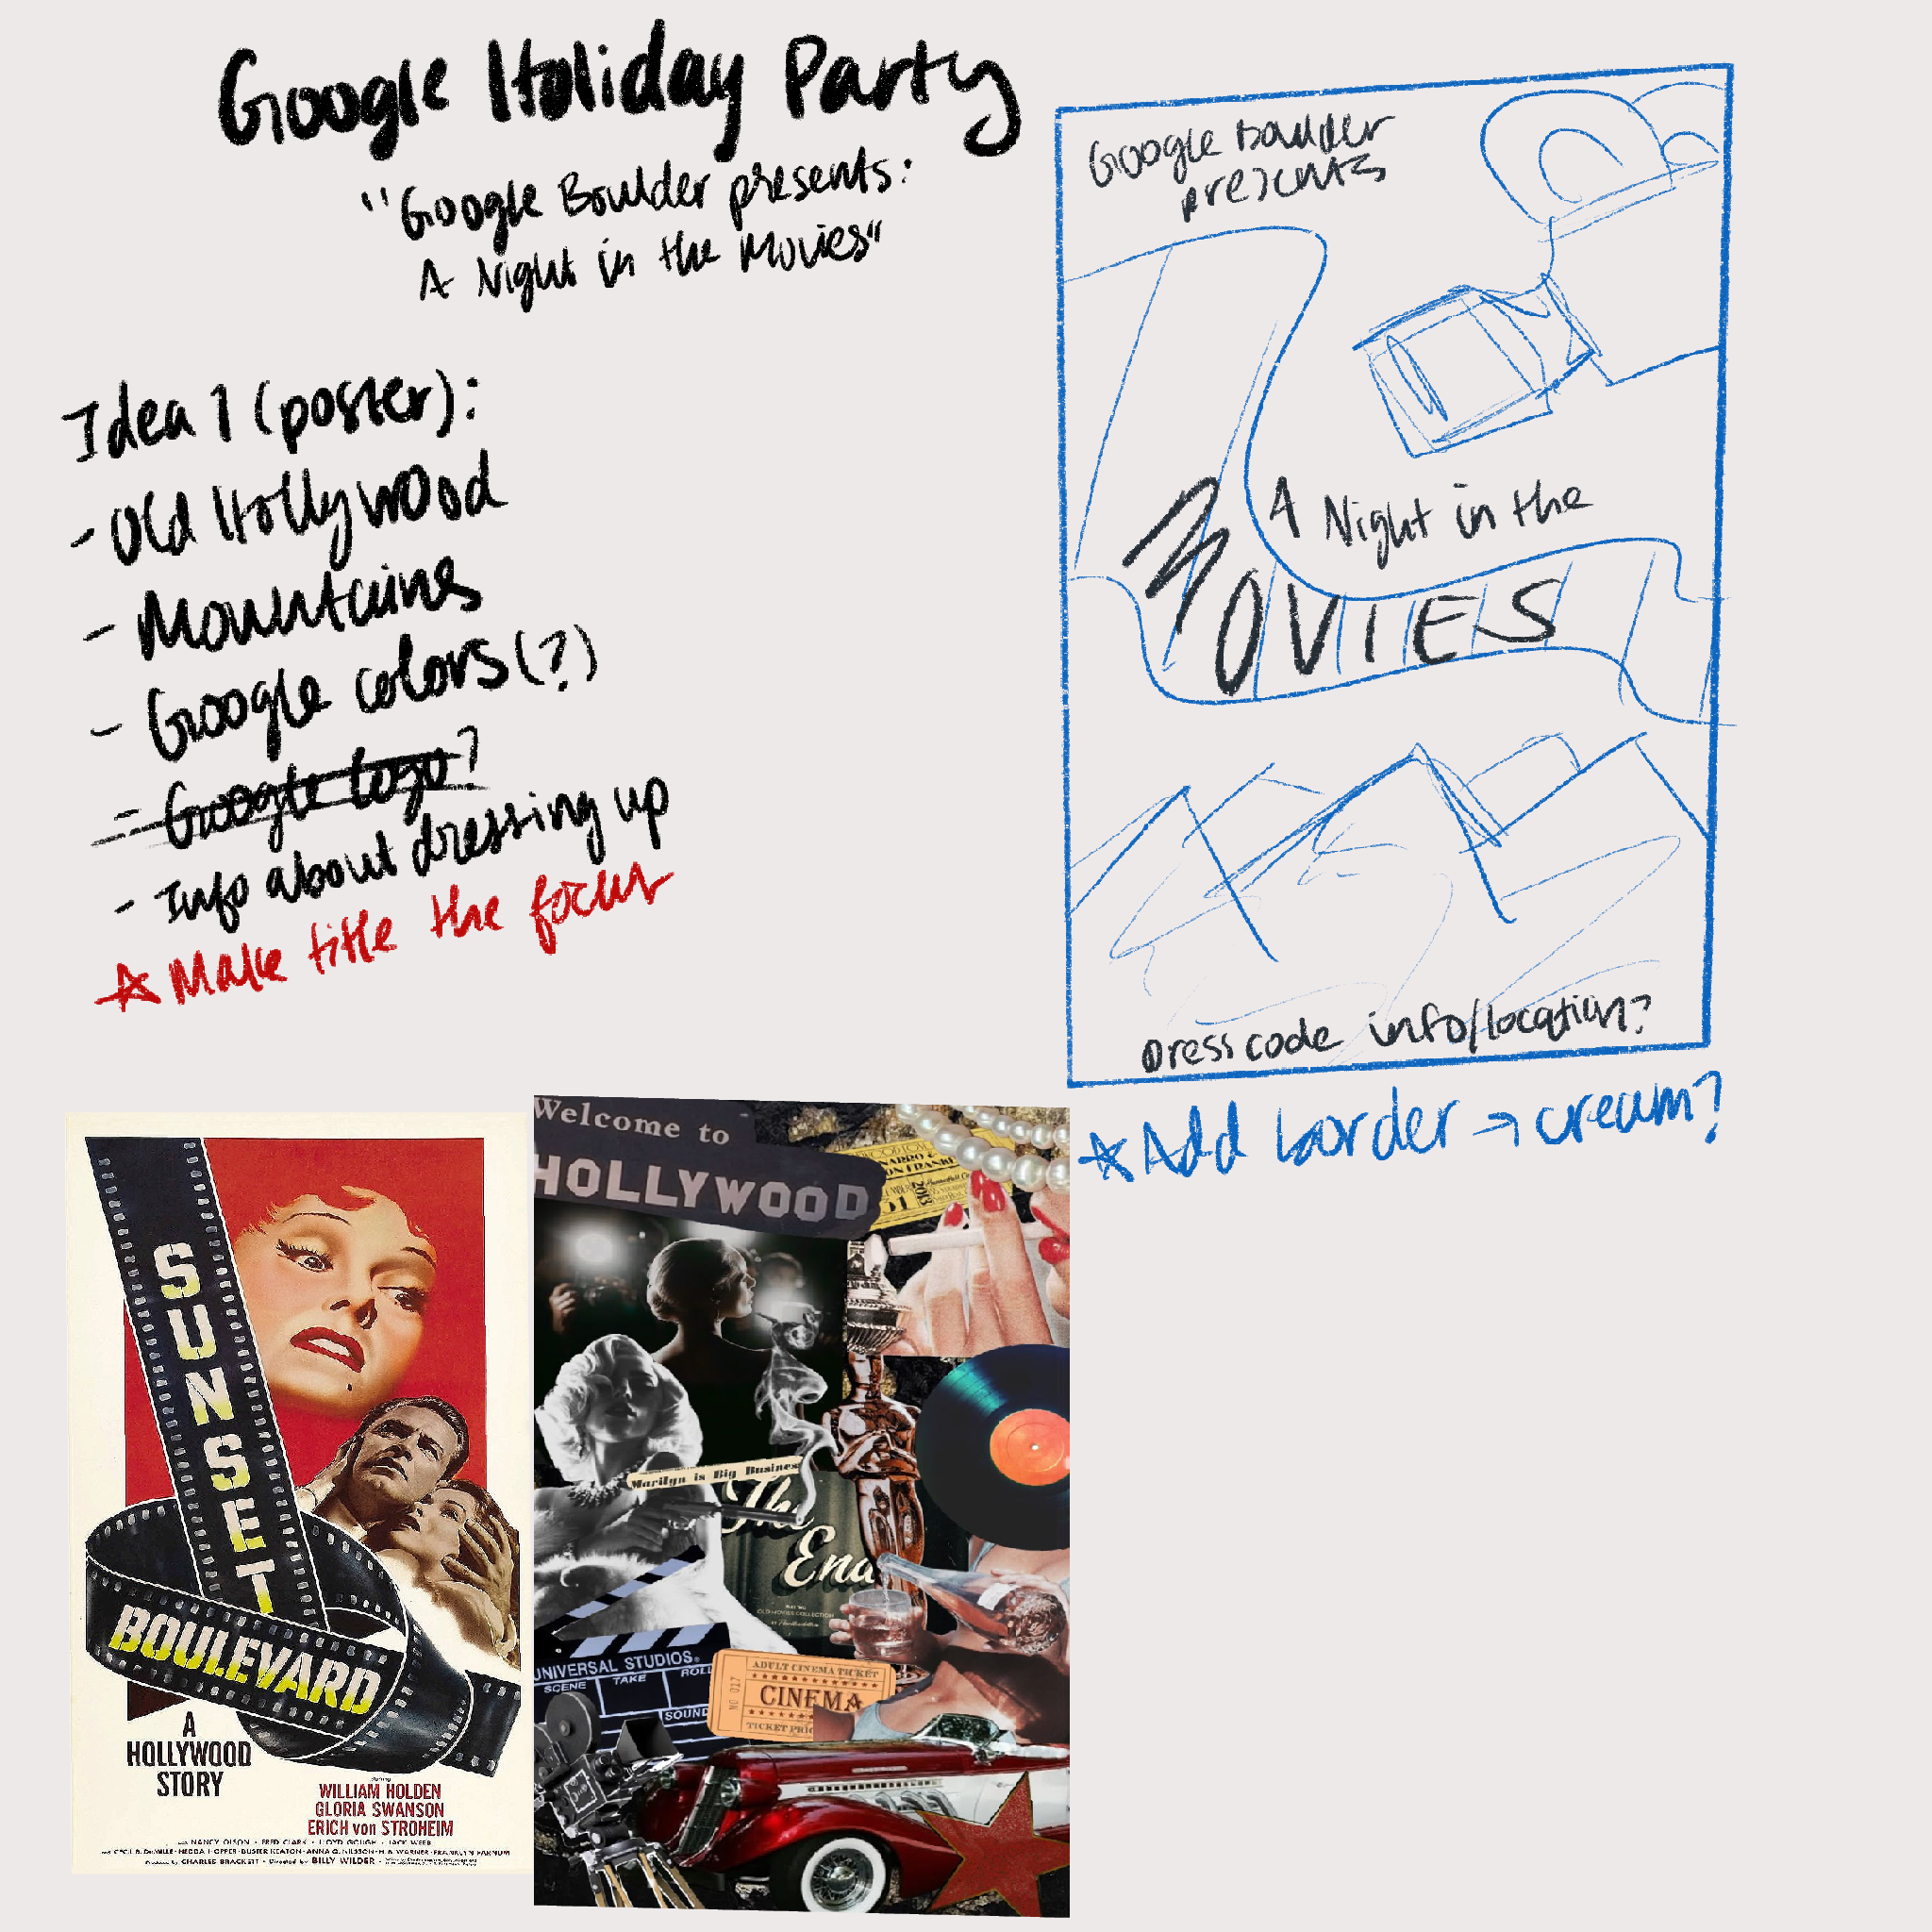 Google Holiday Party
"Google Boulder presents:
A Night in the Movies"
Idea 1 (poster):
- Old Hollywood
- Mountains
- Google colors (?)
- Google logo?
- Info about dressing up
☆ Make title the focus
Google Boulder
presents
A Night in the
MOVIES
Dress code info/location?
☆ Add border → cream?
SUNSET
BOULEVARD
A
HOLLYWOOD
STORY
WILLIAM HOLDEN
GLORIA SWANSON
ERICH von STROHEIM
with NANCY OLSON · FRED CLARK · LLOYD GOUGH · JACK WEBB
and CECIL B. DeMILLE · HEDDA HOPPER · BUSTER KEATON · ANNA Q. NILSSON · H. B. WARNER · FRANKLYN FARNUM
Produced by CHARLES BRACKETT · Directed by BILLY WILDER
Welcome to
HOLLYWOOD
Marilyn is Big Busines
The
End
UNIVERSAL STUDIOS
SCENE TAKE ROLL
SOUND
NO 017
ADULT CINEMA TICKET
CINEMA
TICKET PRIC